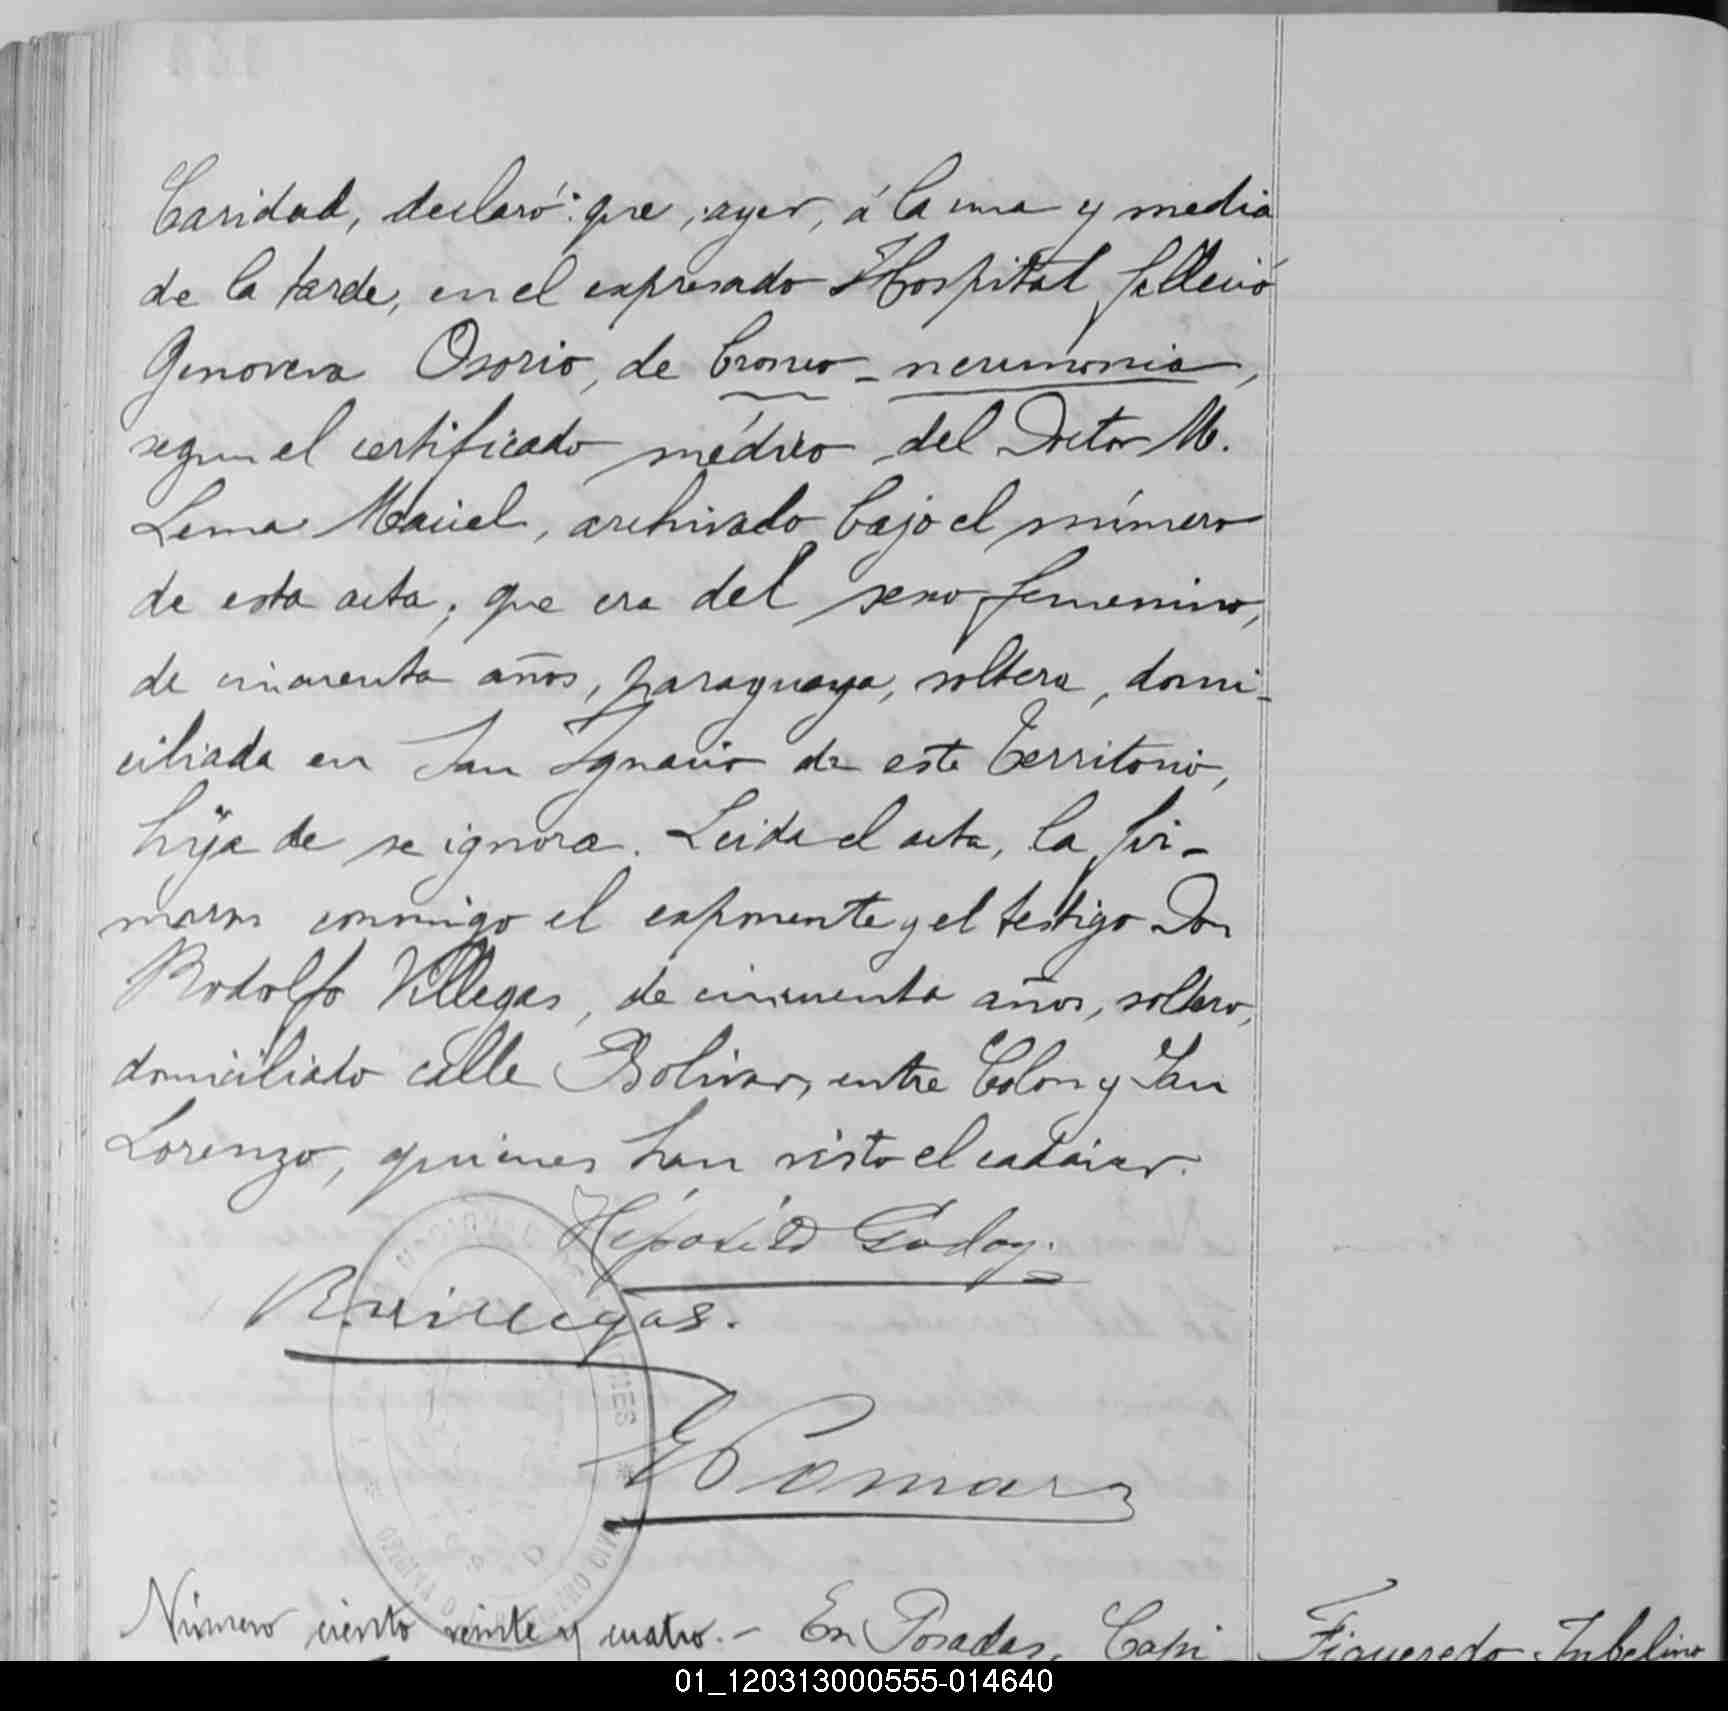 Caridad, declaró: que, ayer, á la una y media
de la tarde, en el expresado Hospital falleció
Genoveva Osorio, de bronco-neumonia,
segun el certificado médico del Doctor M.
Lema Maciel, archivado bajo el número
de esta acta; que era del sexo femenino,
de cincuenta años, paraguaya, soltera, domi-
ciliada en San Ignacio de este Territorio,
hija de se ignora. Leida el acta, la fir-
maron conmigo el exponente y el testigo Don
Rodolfo Villegas, de cincuenta años, soltero,
domiciliado calle Bolivar, entre Colon y San
Lorenzo, quienes han visto el cadáver.
Hipólito Godoy.
R. Villegas.
Número ciento veinte y cuatro.- En Posadas, Capi-
Figueredo Jubelino
01_120313000555-014640